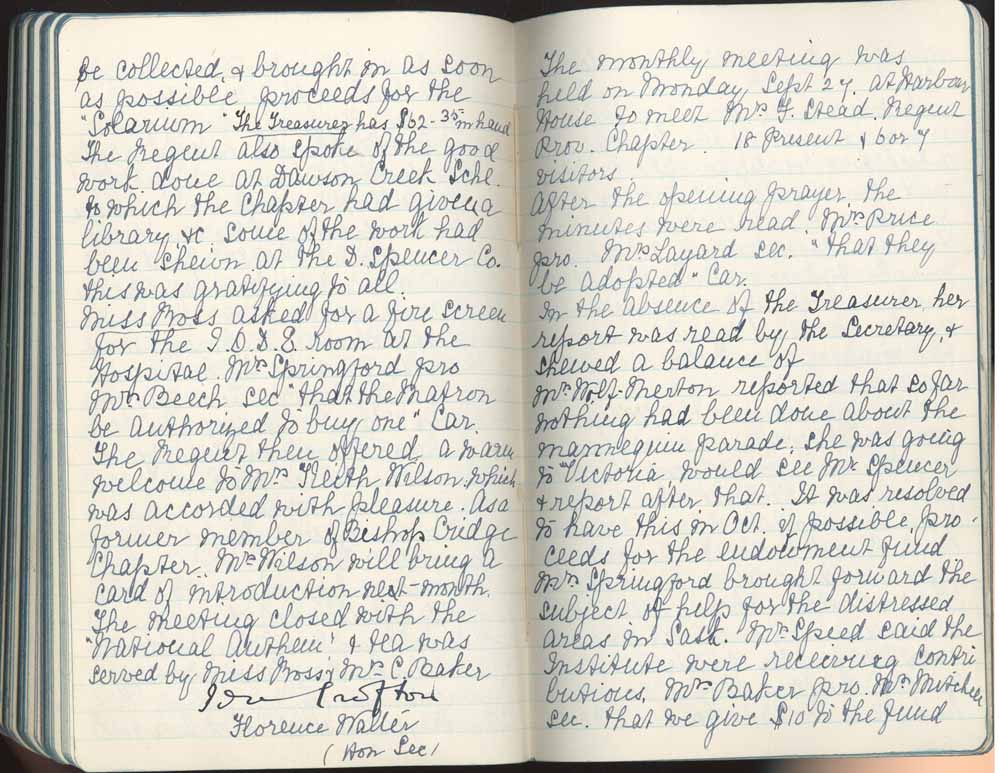 be collected, & brought in as soon
as possible proceeds for the
"Solarium" The Treasurer has $62-35 in hand
The Regent also spoke of the good
work done at Dawson Creek Schl.
to which the Chapter had given a
library, &c. some of the work had
been shewn at the D. Spencer Co.
this was gratifying to all.
Miss Moss asked for a fire screen
for the I.O.D.E. room at the
Hospital. Mrs Springford pro
Mrs Beech sec "that the Matron
be authorized to buy one" Car.
The Regent then offered a warm
welcome to Mrs Keith Wilson, which
was accorded with pleasure. As a
former member of Bishop Cridge
Chapter. Mrs Wilson will bring a
card of introduction next month.
The meeting closed with the
"National Anthem" & tea was
served by Miss Moss, Mrs C. Baker
Crofton
Florence Walter
(Hon Sec)
The monthly meeting was
held on Monday, Sept 27. at Harbour
House to meet Mrs F. Stead. Regent
Prov. Chapter. 18 Present & 6 or 7
visitors.
After the opening prayer, the
minutes were read. Mrs Price
pro. Mrs Layard sec. "that they
be adopted" Car.
In the absence of the Treasurer her
report was read by the Secretary, &
shewed a balance of
Mrs Wolf-Merton reported that so far
nothing had been done about the
mannequin parade. she was going
to Victoria, would see Mr Spencer
& report after that. It was resolved
to have this in Oct. if possible, pro-
ceeds for the endowment fund
Mrs Springford brought forward the
subject of help for the distressed
areas in Sask. Mrs Speed said the
Institute were receiving contri
butions, Mrs Baker pro. Mrs Mitchell
sec. that we give $10 to the fund